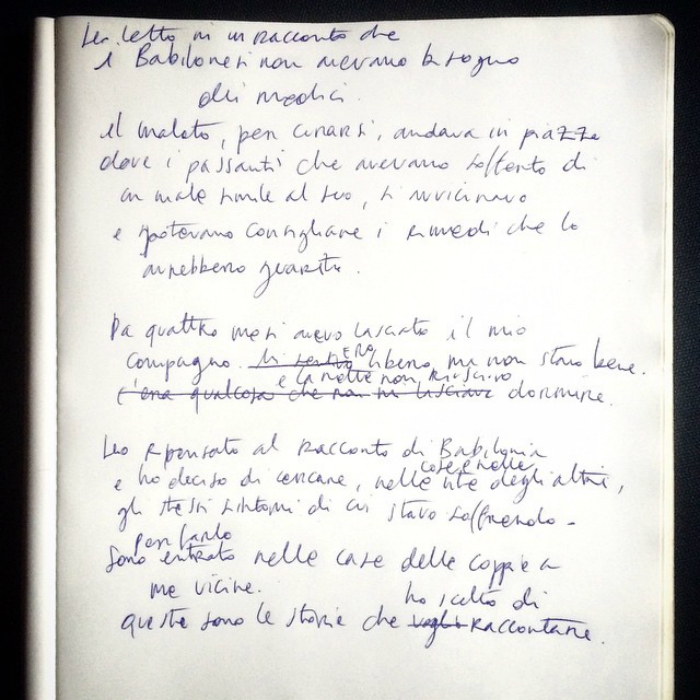 Ho letto in un racconto che
i Babilonesi non avevano bisogno
dei medici.
il malato, per curarsi, andava in piazza
dove i passanti che avevano sofferto di
un male simile al suo, si avvicinavano
e potevano consigliare i rimedi che lo
avrebbero guarito.
Da quattro mesi avevo lasciato il mio
ERO
compagno. Mi sentivo libero, ma non stavo bene.
e la notte non riuscivo
c'era qualcosa che non mi lasciava dormire.
Ho ripensato al racconto di Babilonia
case e nelle
e ho deciso di cercare, nelle vite degli altri,
gli stessi sintomi di cui stavo soffrendo.
per farlo
Sono entrato nelle case delle coppie a
me vicine.
ho scelto di
queste sono le storie che voglio raccontare.